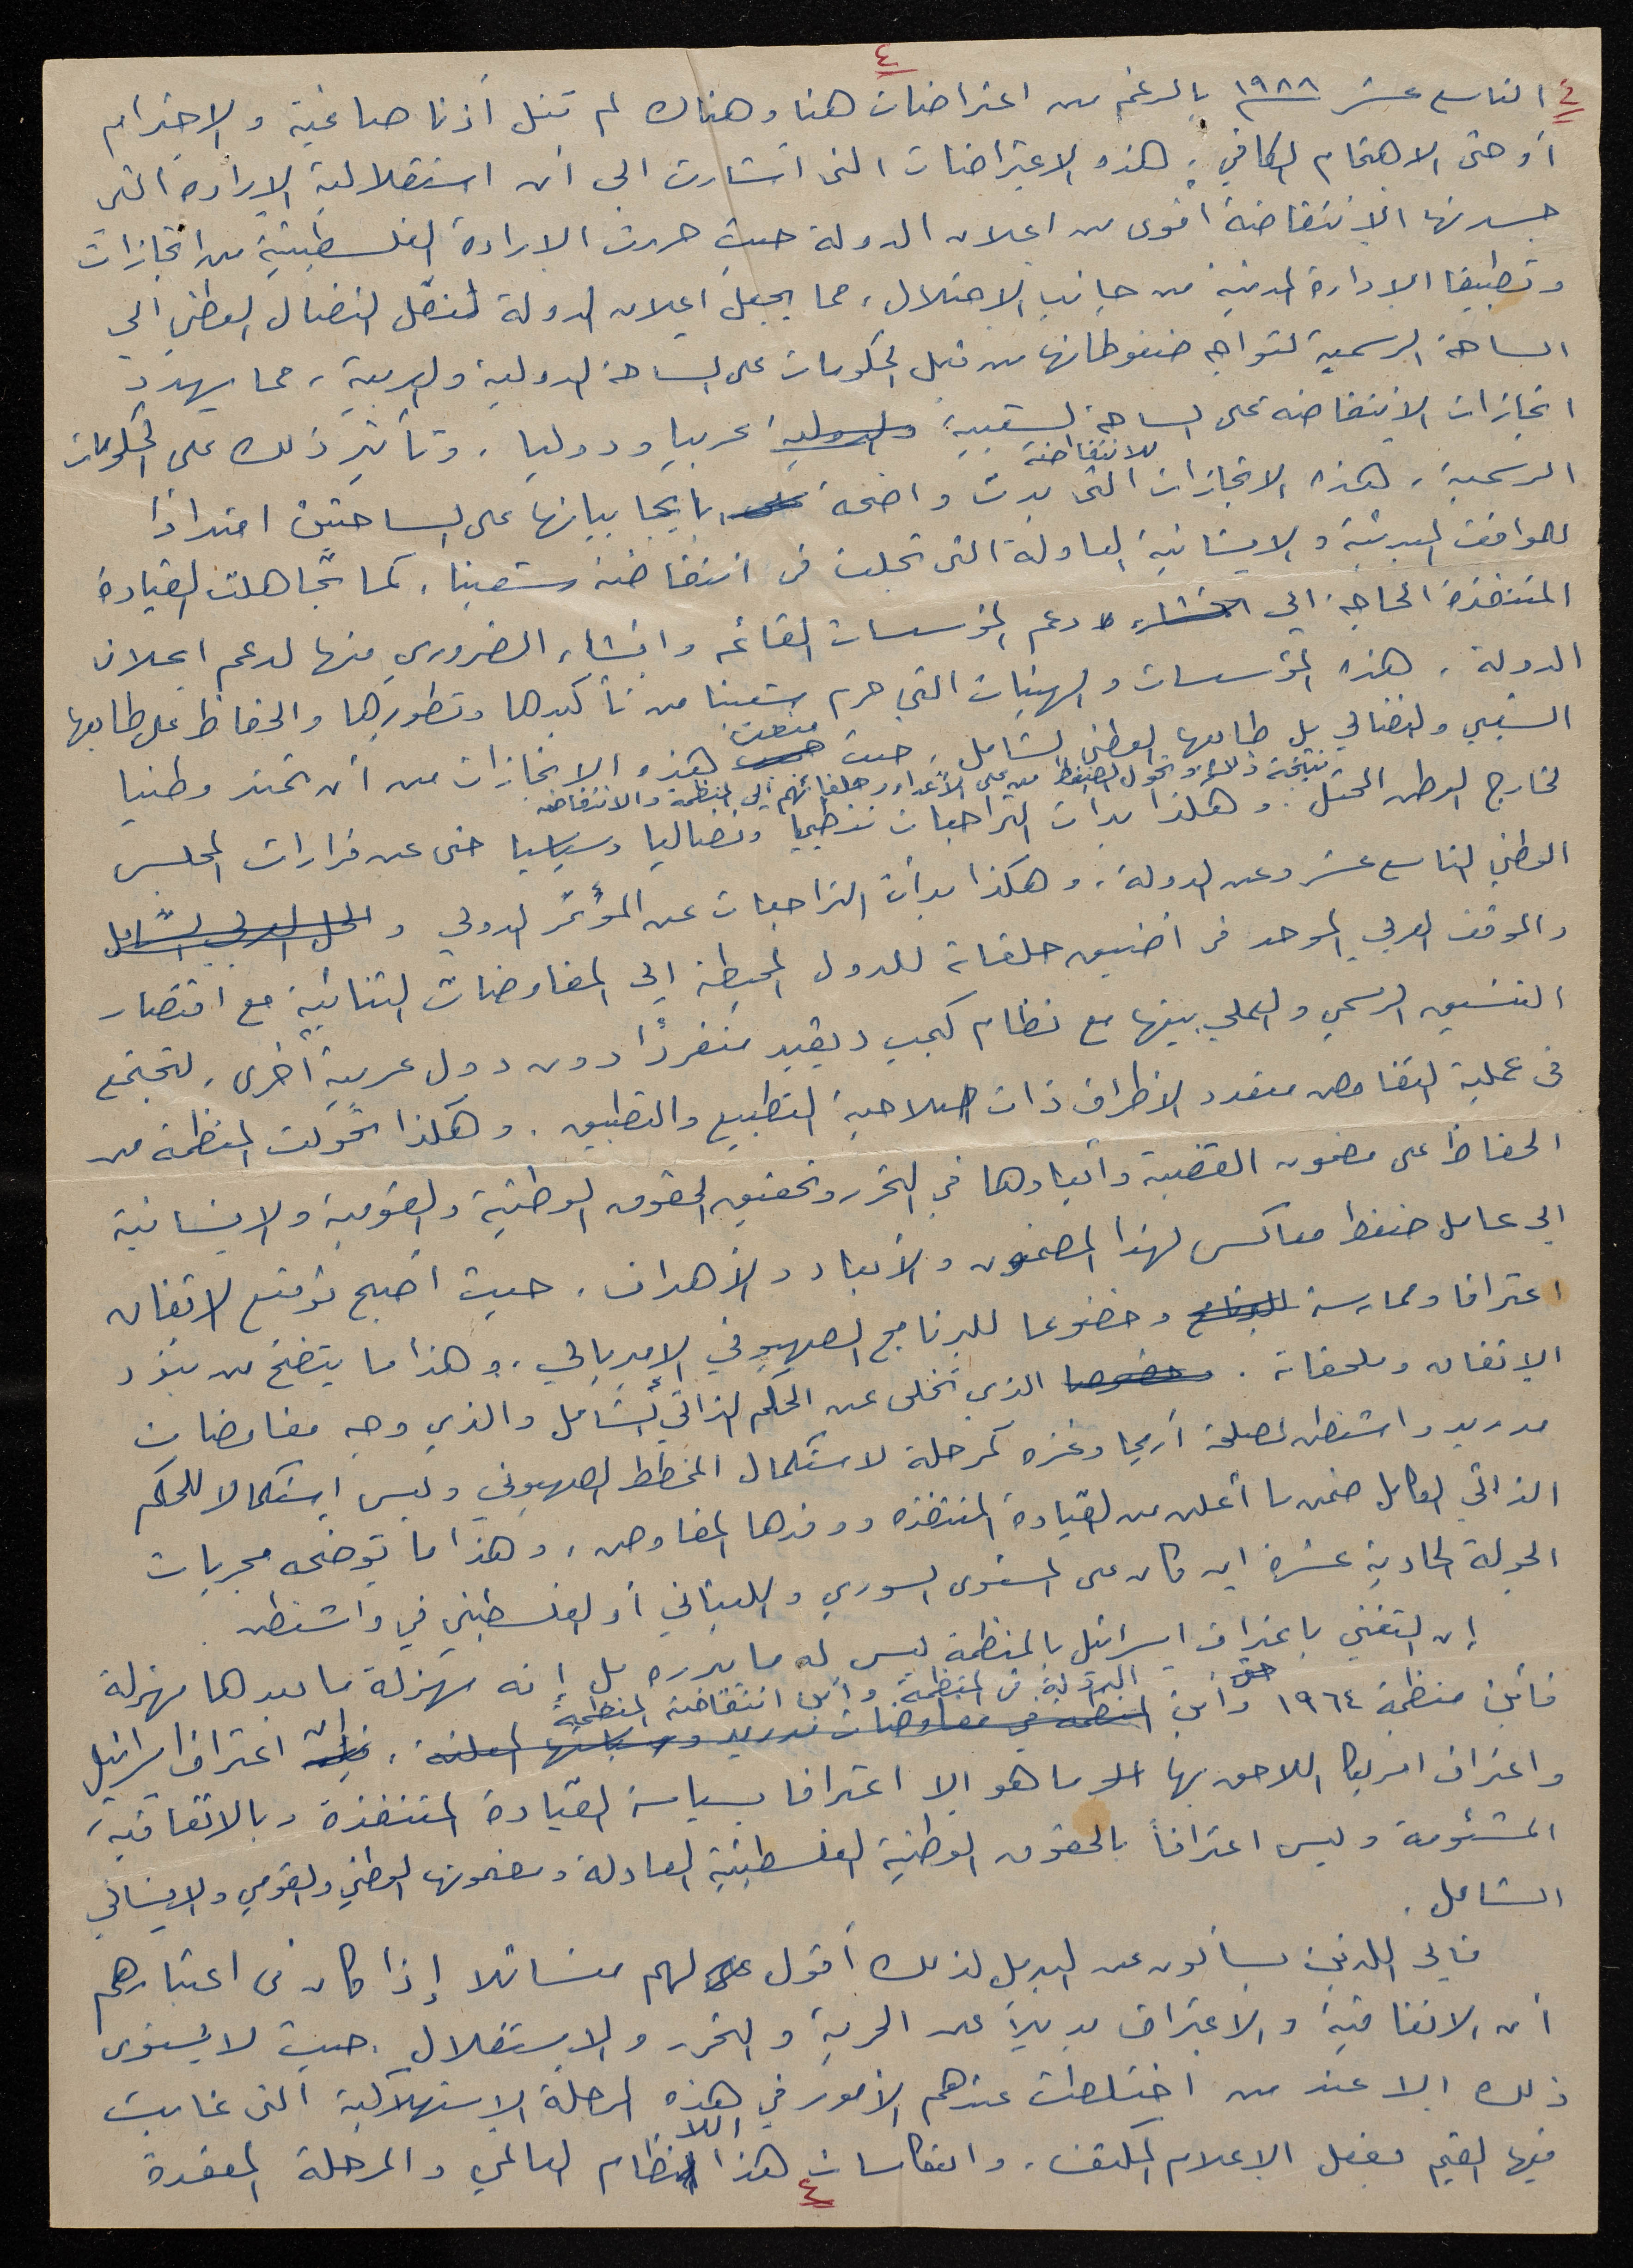 ٤
٤ التاسع عشر ١٩٨٨ بالرغم من اعتراضات هنا وهناك لم تنل أذنا صاغية والاحترام
أو حتى الاهتمام الكافي، هذه الاعتراضات التي أشارت الى أن استقلالية الإرادة التي
جسدتها الانتفاضة أقوى من اعلان الدولة حيث حررت الارادة الفلسطينية من انجازات
وتطبيقا الادارة المدنية من جانب الاحتلال، مما يجعل اعلان الدولة لنقل النضال الوطني الى
الساحة الرسمية لتواجه ضغوطاتها من قبل الحكومات على الساحة الدولية والعربية، مما يهدد
انجازات الانتفاضة على الساحة الشعبية والدولية عربيا ودوليا، وتأثير ذلك على الحكومات
الرسمية، هذه الانجازات للانتفاضة التي بدت واضحة على بايجابياتها على الساحتين امتدادًا
للمواقف المبدئية والانسانية العادلة التي تجلت في انتفاضة شعبنا. كما تجاهلت القيادة
المتنفذة الحاجة الى انشاء دعم المؤسسات القائمه وانشاء الضروري منها لدعم اعلان
الدولة، هذه المؤسسات والهيئات التي حرم شعبنا من تأكيدها وتطورها والحفاظ على طابعها
الشعبي والنضالي بل طابعها الوطني الشامل، حيث منعت هذه الانجازات من أن تمتد وطنيا
لخارج الوطن المحتل. وهكذا بدأت نتيجة ذلك وتحول الضغط من على الأعداء وحلفائهم إلى المنظمة والانتفاضه التراجعات تنظيميا ونضاليا وسياسيا حتى عن قرارات المجلس
الوطني التاسع عشر وعن الدولة، وهكذا بدأت التراجعات عن المؤتمر الدولي و الحل العربي الشامل
والموقف العربي الموحد في أضيق حلقاته للدول المحيطة إلى المفاوضات الثنائية مع اقتصار
التنسيق الرسمي والعملي بينها مع نظام كمب ديفيد منفردًا دون دول عربية أخرى، لتجتمع
في عملية التفاوض متعدد الأطراف ذات صلاحية التطبيع والتطبيق. وهكذا تحولت المنظمة من
الحفاظ على مضمون القضية وأبعادها في التحرر وتحقيق الحقوق الوطنية والقومية والانسانية
الى عامل ضغط معاكس لهذا المضمون والأبعاد والأهداف، حيث أصبح توقيع الاتفاق
اعترافا وممارسة للبرنامج وخضوعا للبرنامج الصهيوني الامبريالي، وهذا ما يتضح من بنود
الاتفاق وملحقاته. وخصوصا الذي تخلى عن الحكم الذاتي الشامل والذي وجه مفاوضات
مدريد واشنطن لمصلحة أريحا وغزه كمرحلة لاستكمال المخطط الصهيوني وليس استكمالا للحكم
الذاتي الكامل ضمن ما أعلن من القيادة المتنفذه ووفدها المفاوض، وهذا ما توضحه مجريات
الجولة الحادية عشرة ان كان على المستوى السوري واللبناني أو الفلسطيني في واشنطن.
إن التغني باعتراف اسرائيل بالمنظمة ليس له ما يبرره بل إنه مهزلة ما بعدها مهزلة
فأين منظمة ١٩٦٤ وأين حق الدولة في المنظمة وأين انتفاضة المنظمة المنظمه في مفاوضات مدريد وسياستها المعلنة، إن اعتراف اسرائيل
واعتراف امريكا اللاحق بها ما هو الا اعترافا بسياسة القيادة المتنفذة وبالاتفاقية
المشئومة وليس اعترافاً بالحقوق الوطنية الفلسطينية العادلة ومضمونها الوطني والقومي والانساني
الشامل.
فإلى اللذين يسألون عن البديل لذلك أقول لهم متسائلا إذا كان في اعتبارهم
أن الاتفاقية والاعتراف بديلاً عن الحرية والتحرر والاستقلال. حيث لا يستوى
ذلك الا عند من اختلطت عندهم الأمور في هذه المرحلة الاستهلاكية التي غابت
فيها القيم بفعل الاعلام المكثف، وانعكاسات هذا اللانظام العالمي والمرحلة المعقدة
٤